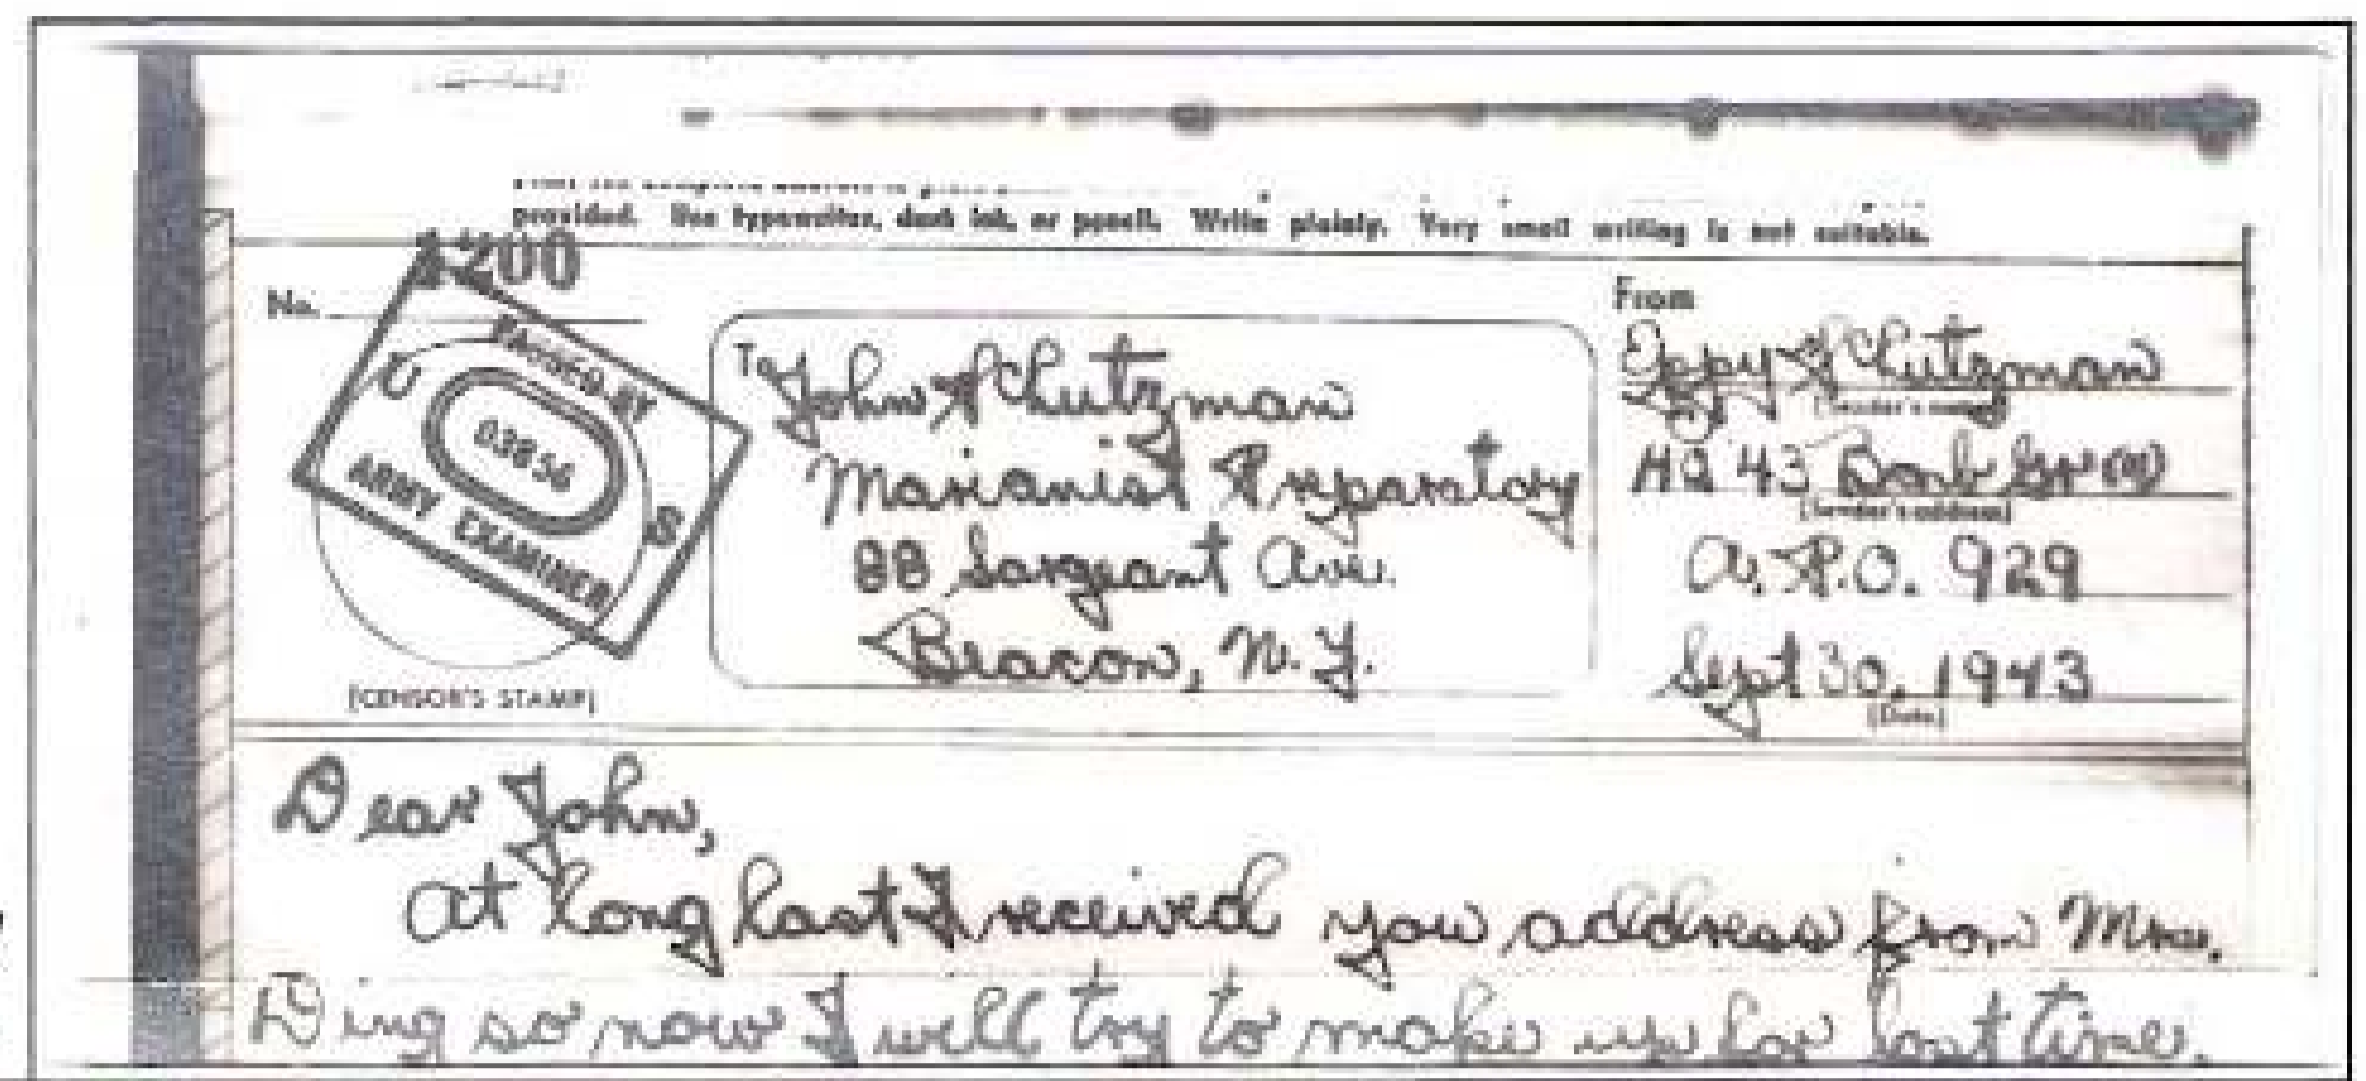 provided. Use typewriter, dark ink, or pencil. Write plainly. Very small writing is not suitable.
No.
PASSED BY
U S
03856
ARMY EXAMINER
[CENSOR'S STAMP]
To
John Schutzman
Marianist Preparatory
88 Sargeant Ave.
Beacon, N.Y.
From
Schutzman
(Sender's name)
HQ 43 Bomb Gr (H)
(Sender's address)
A.P.O. 929
Sept 30, 1943
(Date)
Dear John,
At long last I received you address from Mrs.
Ding so now I will try to make up for lost time.